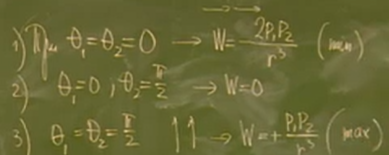 1) При θ₁=θ₂=0 → W=-2p₁p₂/r³ (min)
2) θ₁=0; θ₂=π/2 → W=0
3) θ₁=θ₂=π/2 ↑↑ → W=+p₁p₂/r³ (max)